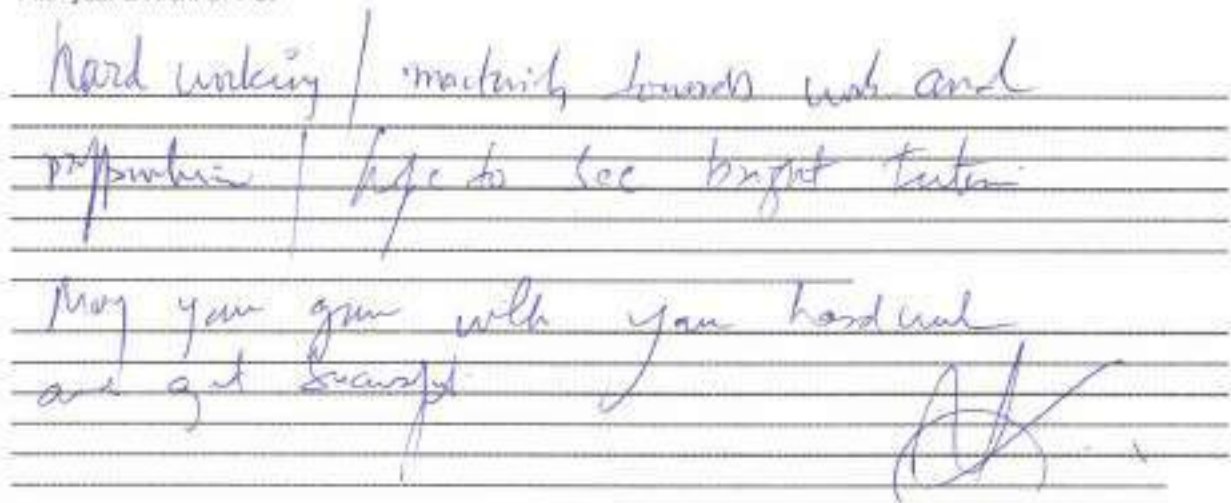 hard working / maturity towards work and
/ hope to see bright future
May you grow with your hard work
and get successful